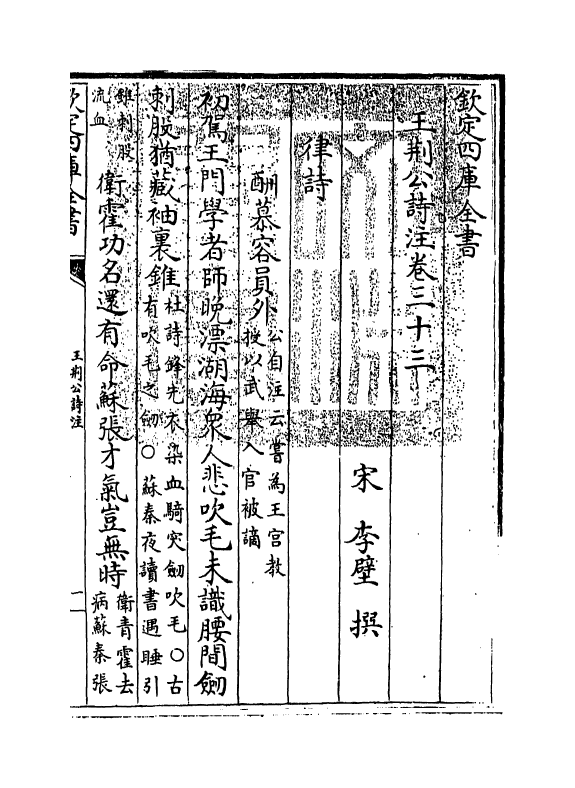 欽定四庫全書
王荆公詩注卷三十三
宋 李壁 撰
律詩
酬慕容員外公自注云嘗為王宮教
授以武舉入官被謫
初駕王門學者師晚漂湖海衆人悲吹毛未識腰間劒
刺股猶藏袖裏錐杜詩鋒先衣染血騎突劒吹毛〇古
有吹毛之劒〇蘇秦夜讀書遇睡引
錐刺股
流血
衛霍功名還有命蘇張才氣豈無時衛青霍去
病蘇秦張
欽定四庫全書
王荆公詩注
一